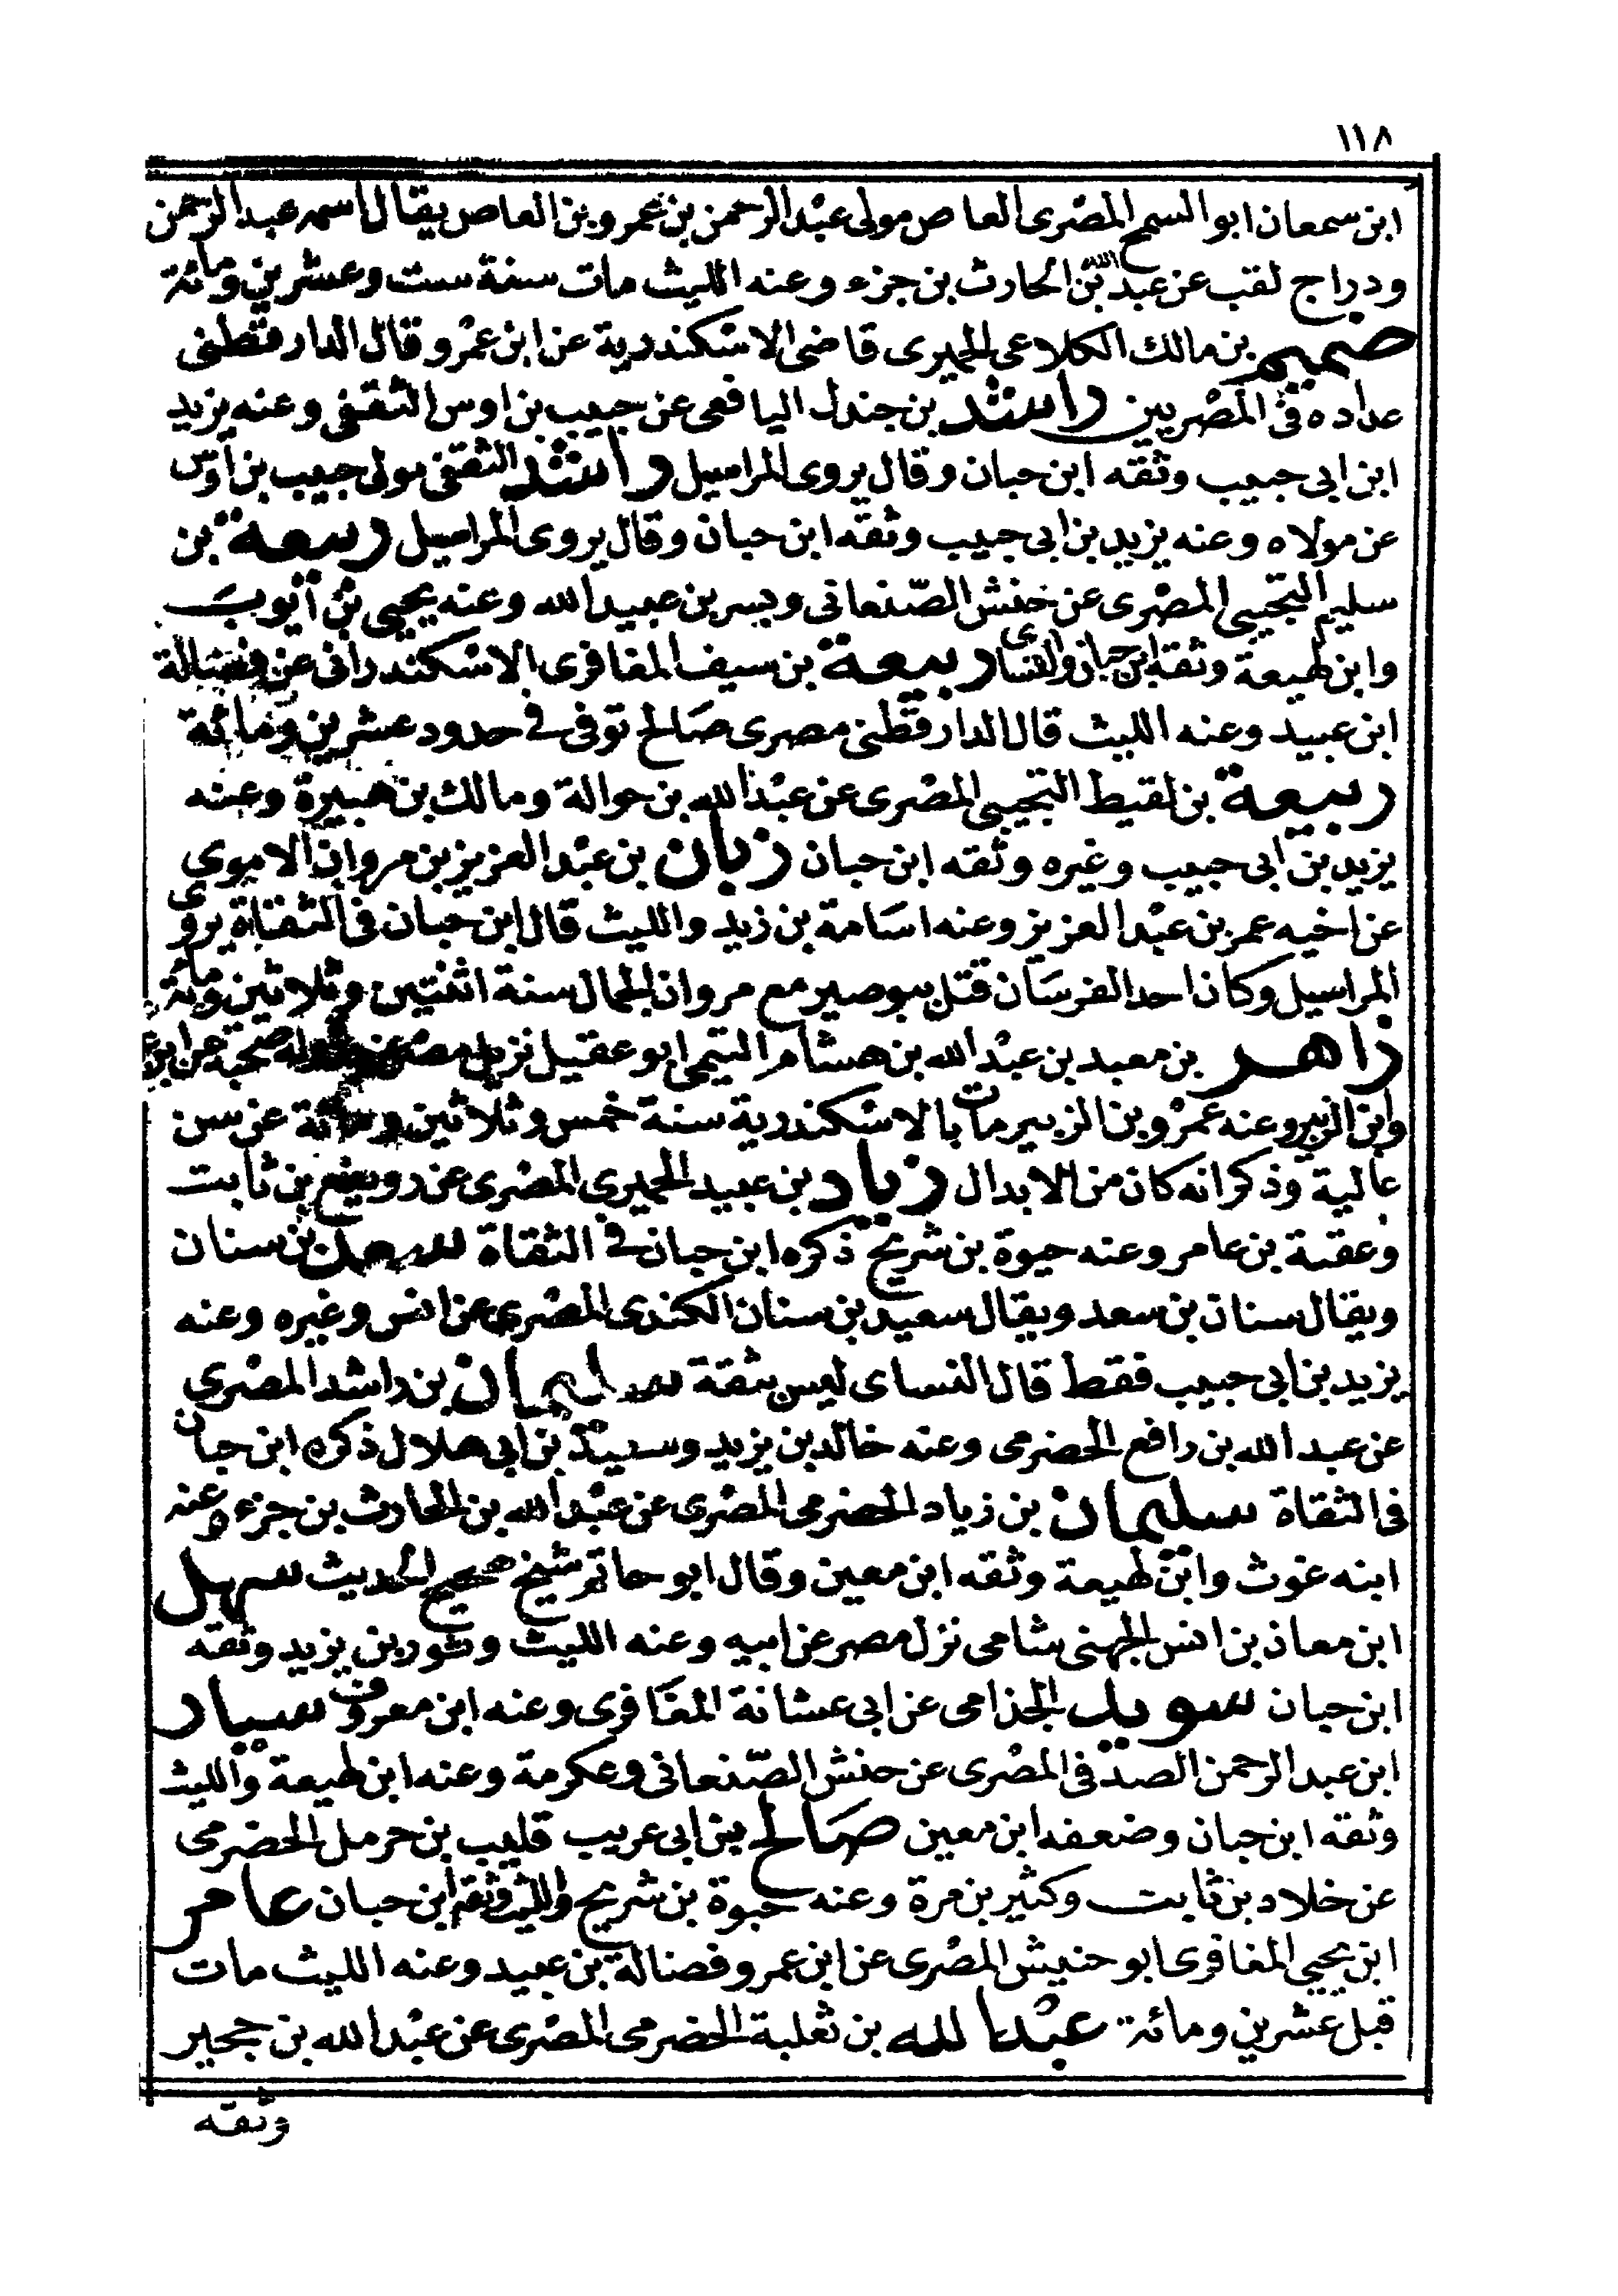 ١١٨
ابن سمعان ابو السمح المصرى العاص مولى عبد الرحمن بن عمرو بن العاص يقال اسمه عبد الرحمن
ودراج لقب عن عبد الله بن الحارث بن جزء وعنه الليث مات سنة ست وعشرين ومائة
ضميم بن مالك الكلاعى الحميرى قاضى الاسكندرية عن ابن عمرو قال الدارقطنى
عداده فى المصريين راشد بن جندل اليافعى عن حبيب بن اوس الثقفى وعنه يزيد
ابن ابى حبيب وثقه ابن حبان وقال يروى المراسيل راشد الثقفى مولى حبيب بن اوس
عن مولاه وعنه يزيد بن ابى حبيب وثقه ابن حبان وقال يروى المراسيل ربيعة بن
سليم التجيبى المصرى عن حنش الصنعانى وبسر بن عبيد الله وعنه يحيى بن ايوب
وابن لهيعة وثقه ابن حبان والنساى ربيعة بن سيف المغافرى الاسكندرانى عن فضالة
ابن عبيد وعنه الليث قال الدارقطنى مصرى صالح توفى فى حدود عشرين ومائة
ربيعة بن لقيط التجيبى المصرى عن عبد الله بن حوالة ومالك بن هبيرة وعنه
يزيد بن ابى حبيب وغيره وثقه ابن حبان زبان بن عبد العزيز بن مروان الاموى
عن اخيه عمر بن عبد العزيز وعنه اسامة بن زيد والليث قال ابن حبان فى الثقاة يروى
المراسيل وكان احد الفرسان قتل ببوصير مع مروان الحمال سنة اثنتين وثلاثين ومائة
زاهر بن معبد بن عبد الله بن هشام التيمى ابو عقيل نزيل مصر عن جده وله صحبة عن ابن عمر
وابن الزبير وعنه عمرو بن الزبير مات بالاسكندرية سنة خمس وثلاثين ومائة عن سن
عالية وذكر انه كان من الابدال زياد بن عبيد الحميرى المصرى عن رويفع بن ثابت
وعقبة بن عامر وعنه حيوة بن شريح ذكره ابن حبان فى الثقاة سعد بن سنان
ويقال سنان بن سعد ويقال سعيد بن سنان الكندى المصرى عن انس وغيره وعنه
يزيد بن ابى حبيب فقط قال النساى ليس بثقة سليمان بن راشد المصرى
عن عبد الله بن رافع الحضرمى وعنه خالد بن يزيد وسعيد بن ابى هلال ذكره ابن حبان
فى الثقاة سليمان بن زياد الحضرمى المصرى عن عبد الله بن الحارث بن جزء وعنه
ابنه غوث وابن لهيعة وثقه ابن معين وقال ابو حاتم شيخ صحيح الحديث سهل
ابن معاذ بن انس الجهنى شامى نزل مصر عن ابيه وعنه الليث وثور بن يزيد وثقه
ابن حبان سويد الجذامى عن ابى عشانة المغافرى وعنه ابن معروف سيار
ابن عبد الرحمن الصدفى المصرى عن حنش الصنعانى وعكرمة وعنه ابن لهيعة والليث
وثقه ابن حبان وضعفه ابن معين صالح بن ابى عريب قليب بن حرمل الحضرمى
عن خلاد بن ثابت وكثير بن مرة وعنه حيوة بن شريح والليث وثقه ابن حبان عامر
ابن يحيى المغافرى ابو حنيش المصرى عن ابن عمر وفضالة بن عبيد وعنه الليث مات
قبل عشرين ومائة عبد الله بن ثعلبة الحضرمى المصرى عن عبد الله بن حجير
وثقه